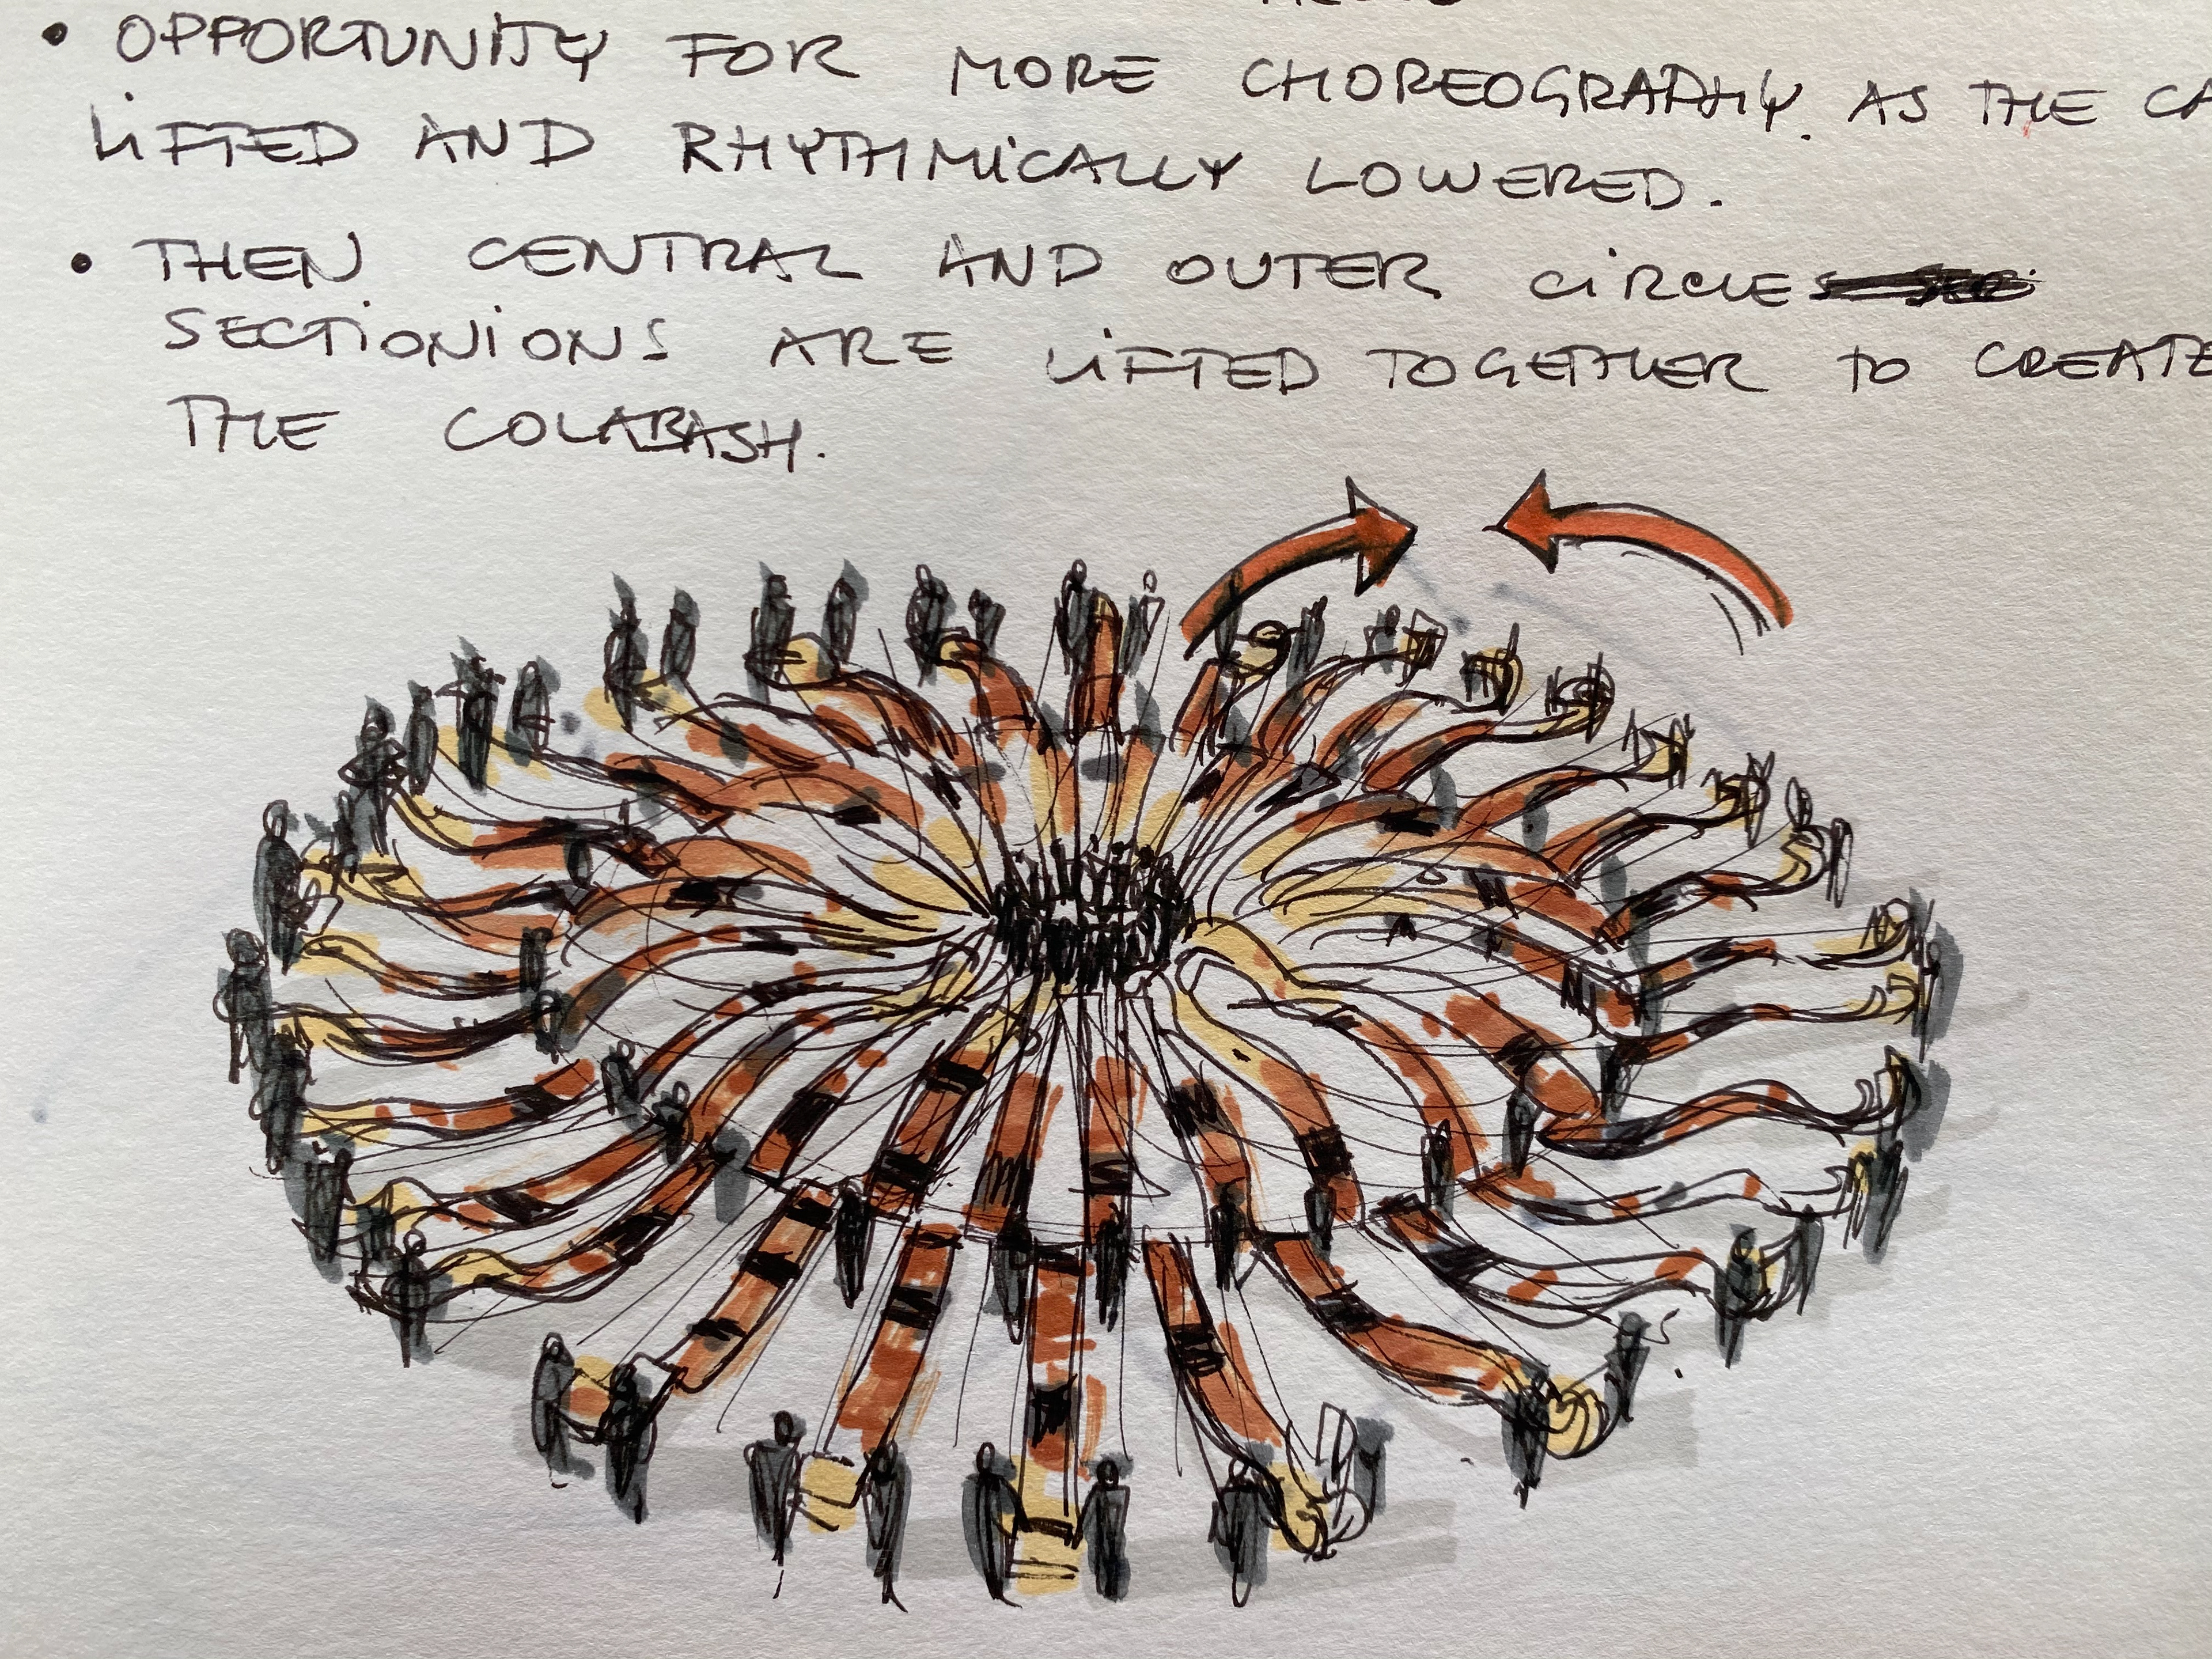 • OPPORTUNITY FOR MORE CHOREOGRAPHY. AS THE CA
LIFTED AND RHYTHMICALLY LOWERED.
• THEN CENTRAL AND OUTER CIRCLES
SECTIONIONS ARE LIFTED TOGETHER TO CREATE
THE COLABASH.